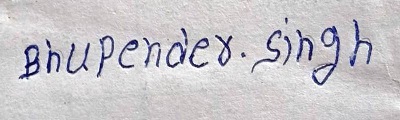 Bhupender. Singh